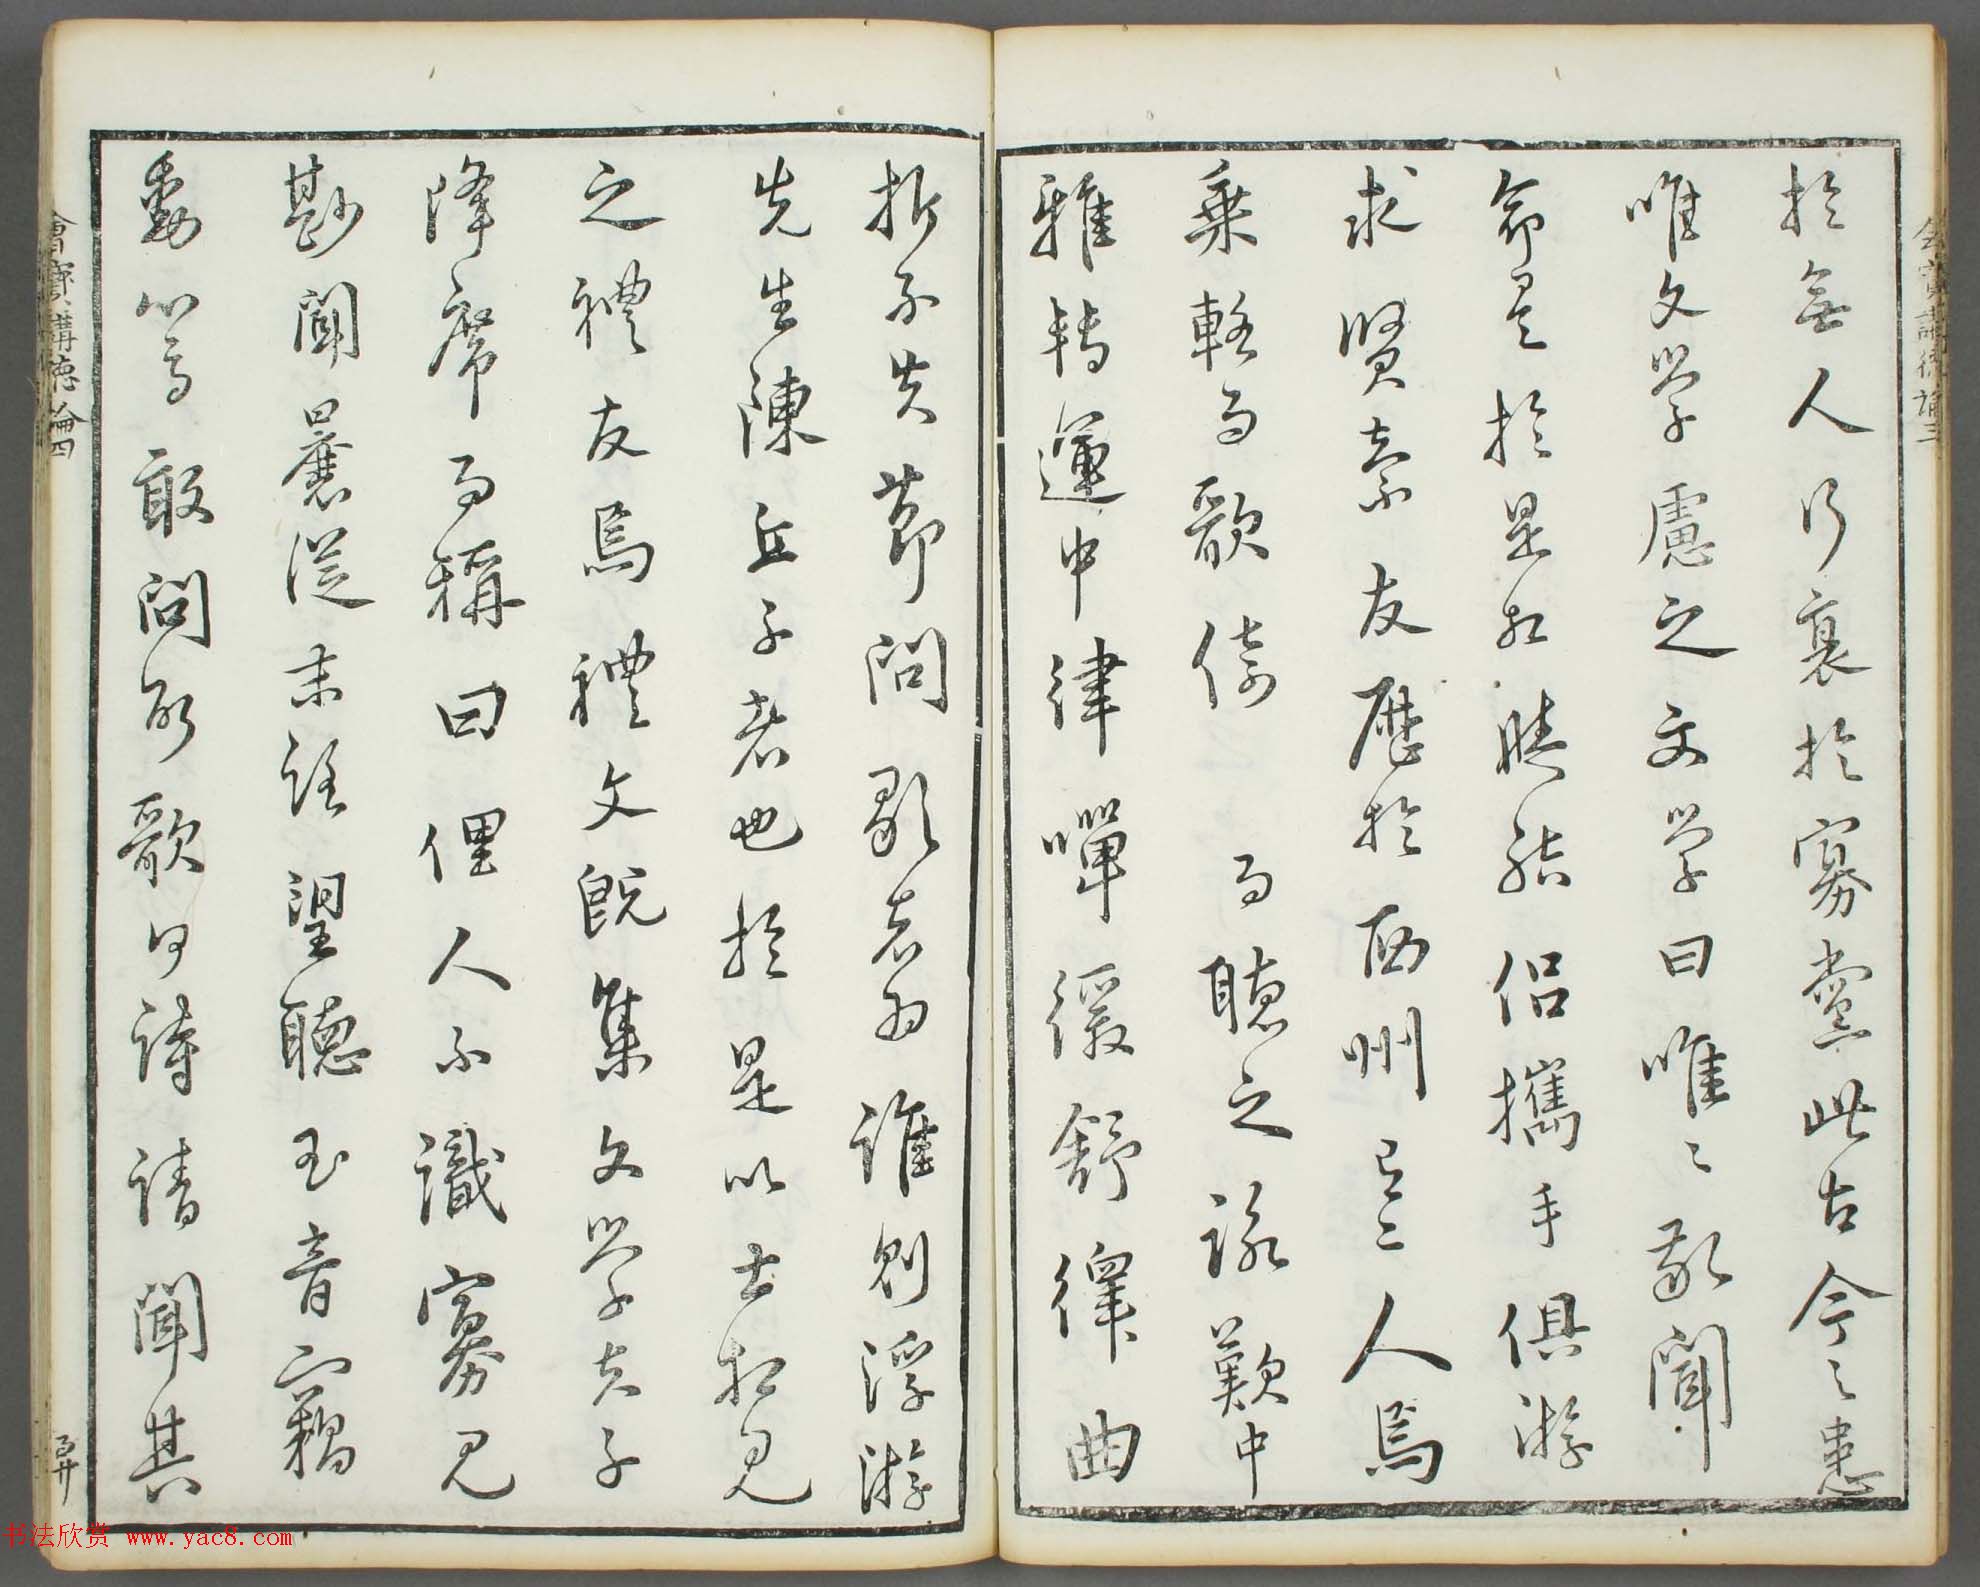 會賓講德論三
於無人行衰於寡黨此古今之患
唯文學慮之文學曰唯〻敬聞
命矣於是相與結侶攜手俱游
求賢索友歷於西州有二人焉
乘輅而歌倚 而聽之詠歎中
雅轉運中律嘽緩舒繹曲
折不失節問歌者為誰則浮游
先生陳丘子者也於是以士相見
之禮友焉禮文既集文學夫子
降席而稱曰俚人不識寡見
尠聞曩從末路望聽玉音竊
動心焉敢問所歌何詩請聞其
會賓講德論四
书法欣赏 www.yac8.com